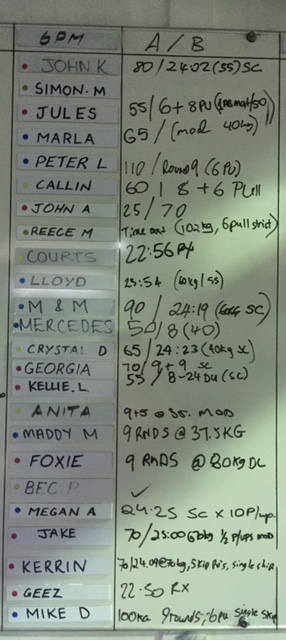 6PM A/B
JOHN K 80/24:02 (55) SC
SIMON.M
JULES 55/6+8PU
MARLA 65/(mod 40kg)
PETER L 110/Round 9 (6PU)
CALLIN 60 | 8+6 Pull
JOHN A 25/70
REECE M Time out (102kg, 6pull strict)
COURTS 22:56 Rx
LLOYD 25:54 (60kg/55)
M & M 90/24:19 (60kg SC)
MERCEDES 50/8(40)
CRYSTAL D 65/24:23 (40kg SC)
GEORGIA 70/9+9 SC
KELLIE.L 55/8-24DU (SC)
ANITA 9+5 @ 35. MOD
MADDY M 9 RNDS @ 37.5KG
FOXIE 9 RNDS @ 80KG DL
BEC P ✓
MEGAN A 24.25 SC x 10P/ups.
JAKE 70/25:00 @ 70kg 1/2 p/ups mod
KERRIN 70/24.09@70kg, single skip
GEEZ 22.50 RX
MIKE D 100KG 9rounds, 6PU single skip